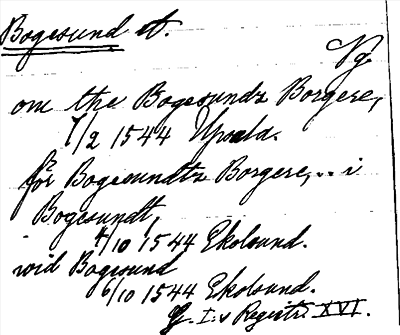 Bogesund st.
Vg.
om the Bogesundz Borgere,
7/2 1544 Upsala.
för Bogesundtz Borgere, .. i
Bogesundt,
4/10 1544 Ekolsund.
wid Bogesund
6/10 1544 Ekolsund.
G. I:s Registr. XVI.